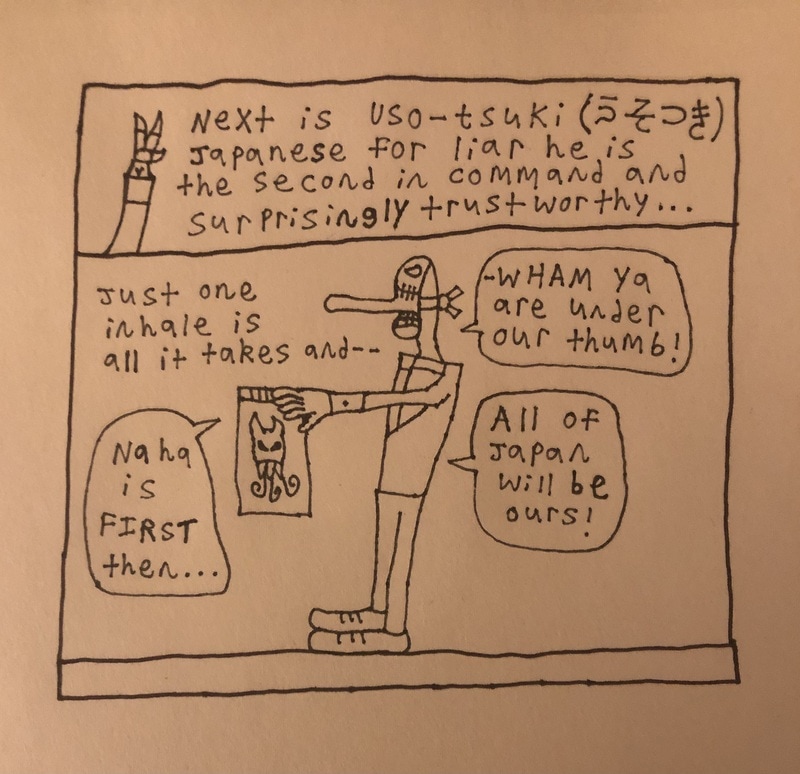 Next is USO-tsuki (うそつき)
Japanese for liar he is
the second in command and
surprisingly trustworthy...
Just one
inhale is
all it takes and--
-WHAM Ya
are under
our thumb!
Naha
is
FIRST
then...
All of
Japan
will be
ours!